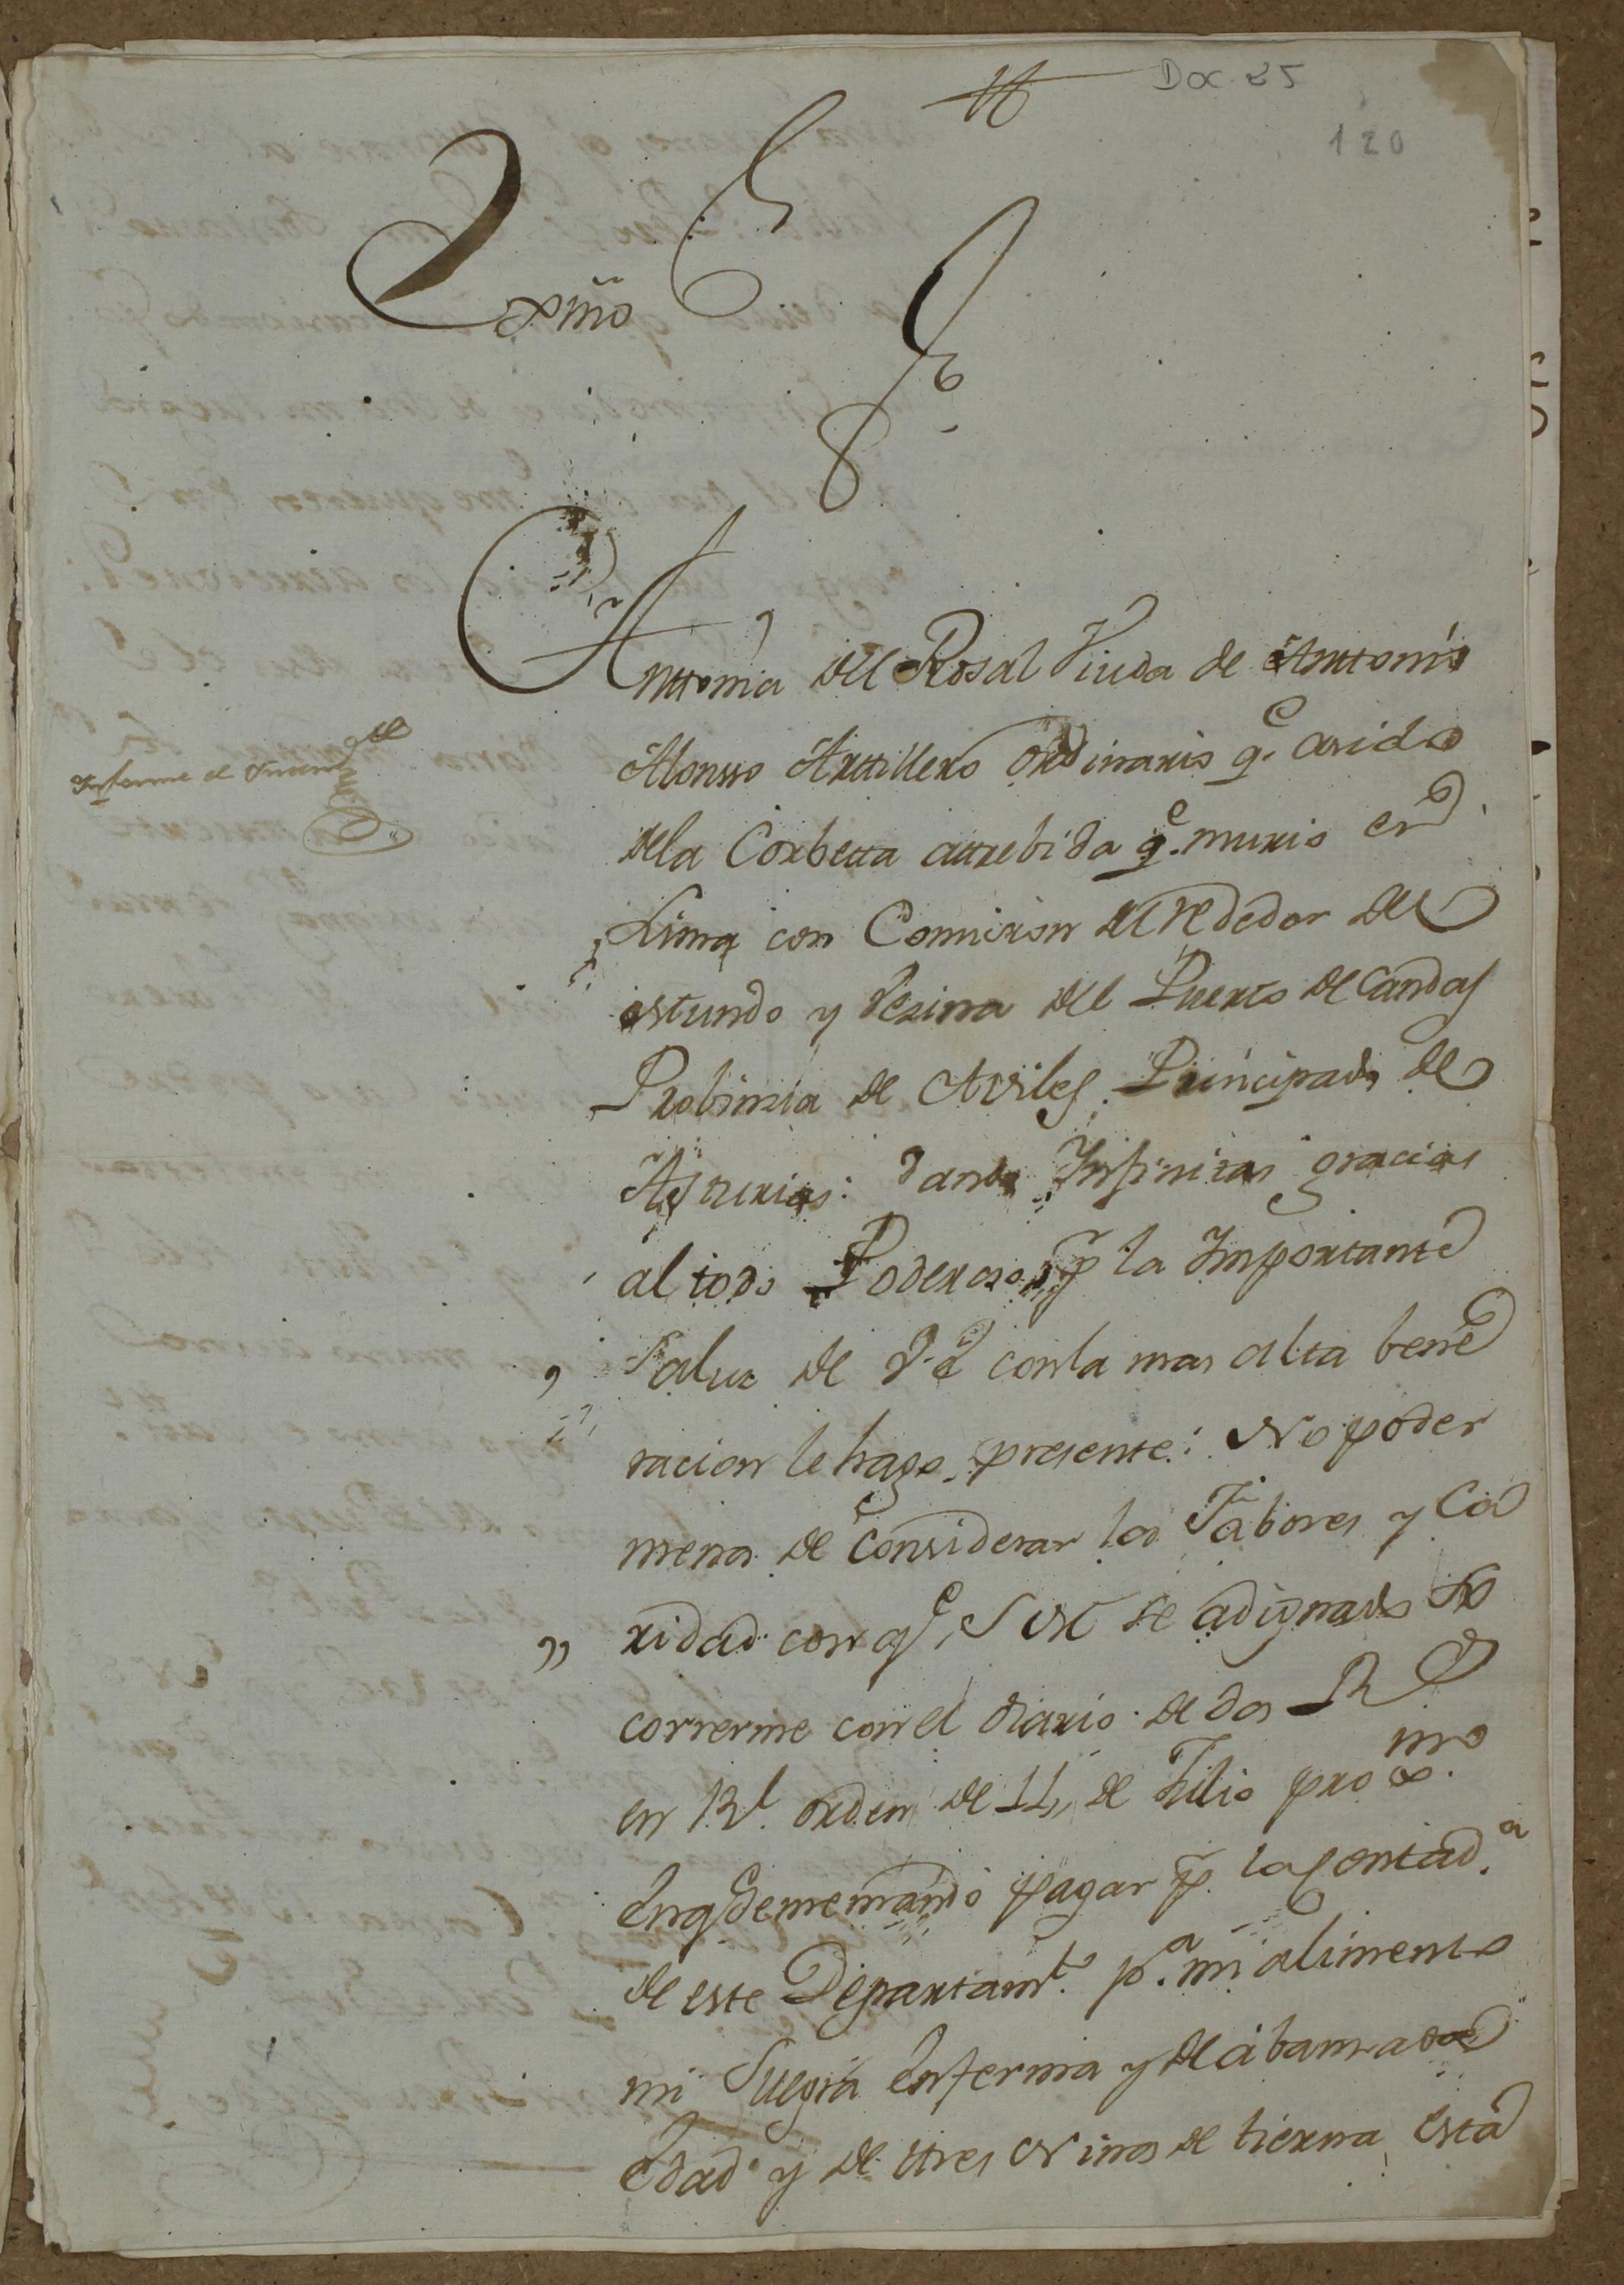 Doc 25
120
Exmo Sr
Anttonia del Rosal Viuda de Anttonio
Informe el
Alonsso Arttillero ordinario q.e asido
dela Corbetta attrebida q.e murio en
Lima con Comision alrededor del
estundo y Vezina del Puerto de Candas
Probinzia de Aviles Principado de
Asturias: dando Infinitas gracias
al todo Poderoso, p.r la Importante
Salux de V. E con la mas alta bene
racion le hago presente: No poder
menos de considerar los Fabores y Ca
ridad con q.e S M se adignado So
correrme con el diario de dos R.s
en R.l orden de 11,, de Julio proxmo
Enq.e seme mandó pagar p.r la Contad.a
de este Departam.to p.a mi alimento
mi Suegra Enferma y de abanzada
Edad y de ttres Ninos de tierna Esta